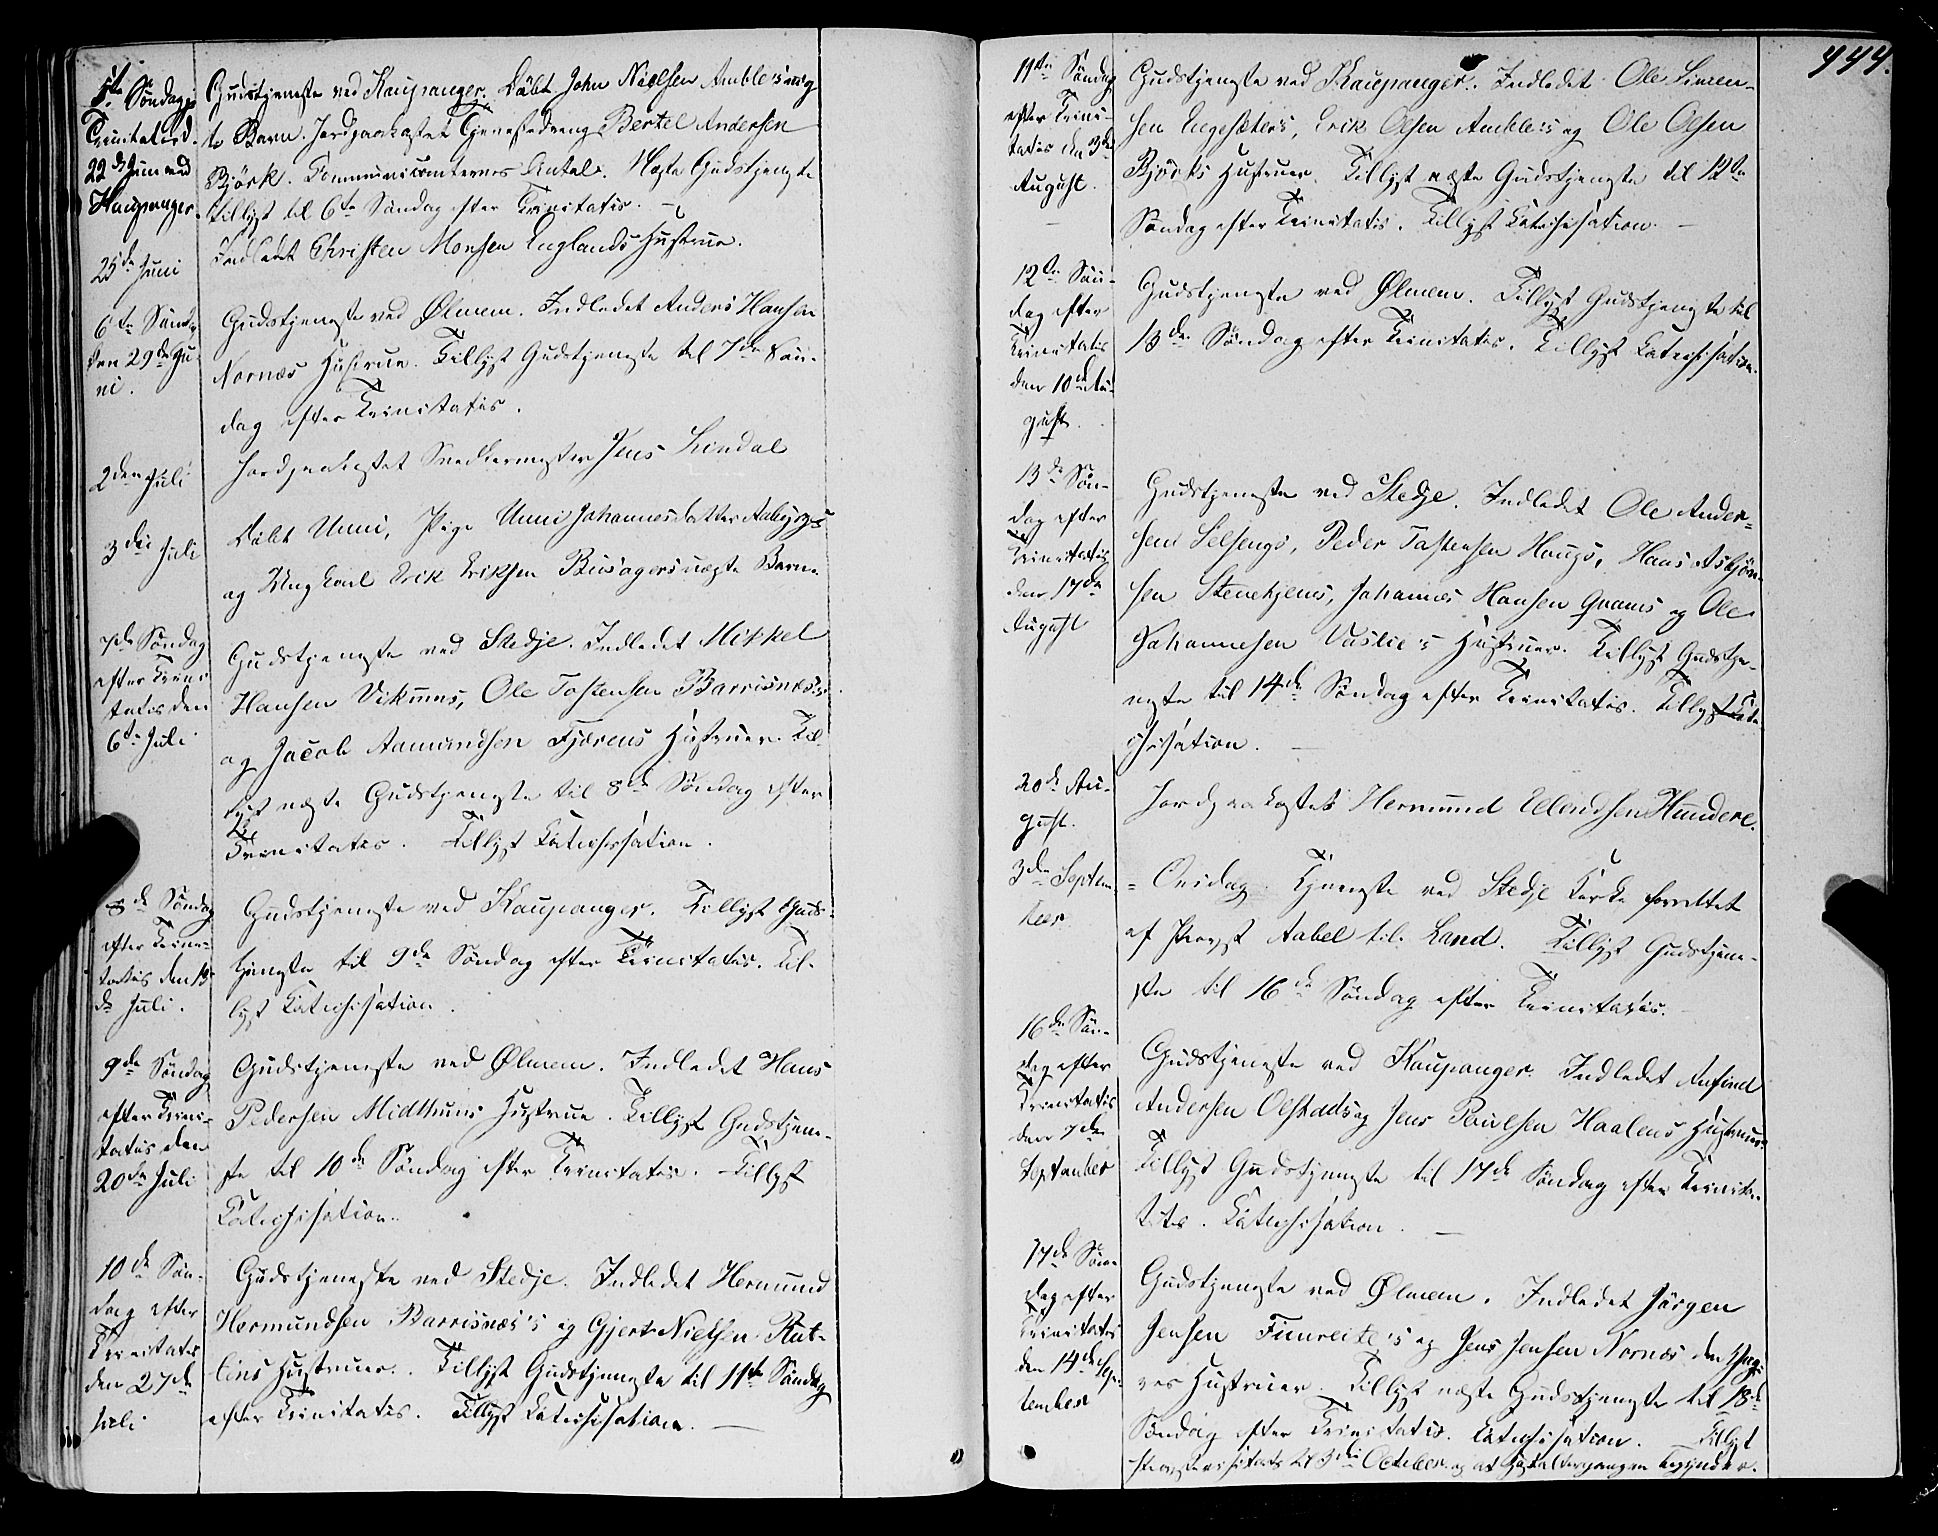 5te Søndag
Trinitatis d.
22de Juni ved
Kaupanger.
Gudstjeneste ved Kaupanger. Døbt John Nielsen Amble's uæg
te Barn. Jordpaakastet Tjenestedreng Bertel Andersen
Bjørk. Communicanternes Antal. Næste Gudstjeneste
tillyst til 6te Søndag efter Trinitatis. —
25de Juni
Indledet Christen Monsen Englands Hustrue.
6te Sønd.
den 29de Ju-
ni.
Gudstjeneste ved Ølmem. Indledet Anders Hansen
Nornæs Hustrue. Tillyst Gudstjeneste til 7de Søn-
dag efter Trinitatis.
2den Juli
Jordpaakastet Snedkermester Jens Lindal
3die Juli
Døbt Unni, Pige Unni Johannesdatter Aaberges
og Ungkarl Erik Eriksen Busagers uægte Barn.
7de Søndag
efter Trini-
tatis den
6te Juli
Gudstjeneste ved Stedje. Indledet Mikkel
Hansen Vikums, Ole Tostensen Barrisnæs's
og Jacob Aamundsen Fjærens Hustruer. Til-
lyst næste Gudstjeneste til 8de Søndag efter
Trinitatis. Tillyst Catechisation.
8de Søndag
efter Trini-
tatis den 13
de Juli.
Gudstjeneste ved Kaupanger. Tillyst Guds-
tjeneste til 9de Søndag efter Trinitatis. Til-
lyst Catechisation.
9de Søndag
efter Trini-
tatis den
20de Juli
Gudstjeneste ved Ølmem. Indledet Hans
Pedersen Midthuns Hustrue. Tillyst Gudstjene-
ste til 10de Søndag efter Trinitatis. Tillyst
Catechisation.
10de Søn-
dag efter
Trinitatis
den 27de
Juli
Gudstjeneste ved Stedje. Indledet Hermund
Hermundsen Barrisnæs's og Gjert Nielsen Rut-
lins Hustruer. Tillyst Gudstjeneste til 11te Søndag
efter Trinitatis. Tillyst Catechisation. —
444.
11te Søndag
efter Trini-
tatis den 3de
August.
Gudstjeneste ved Kaupanger. Indledet Ole Simen-
sen Engesæters, Erik Olsen Amble's og Ole Olsen
Bjørks Hustruer. Tillyst næste Gudstjeneste til 12te
Søndag efter Trinitatis. Tillyst Catechisation. —
12te Søn-
dag efter
Trinitatis
den 10de Au-
gust.
Gudstjeneste ved Ølmem. Tillyst Gudstjeneste til
13de Søndag efter Trinitatis. Tillyst Catechisation.
13de Søn-
dag efter
Trinitatis
den 17de
August
Gudstjeneste ved Stedje. Indledet Ole Ander-
sens Selsengs, Peder Tostensen Haugs, Hans Asbjørn-
sen Stenehjems, Johannes Hansen Qvams og Ole
Johannesen Vaslie's Hustruer. Tillyst Gudstje-
neste til 14de Søndag efter Trinitatis. Tillyst Cate
chisation. —
20de Au-
gust.
Jordpaakastet Hermund Ellendsen Hundere.
3de Septem
ber
= Onsdag. Tjeneste ved Stedje Kirke forrettet
af Provst Aabel til Land. Tillyst Gudstjene-
ste til 16de Søndag efter Trinitatis.
16de Søn-
dag efter
Trinitatis
den 7de
September
Gudstjeneste ved Kaupanger. Indledet Anfind
Andersen Oefstads og Jens Poulsen Haalens Hustruer.
Tillyst Gudstjeneste til 17de Søndag efter Trinita-
tis. Catechisation. —
17de Søn-
dag efter
Trinitatis
den 14de Sep-
tember
Gudstjeneste ved Ølmem. Indledet Jørgen
Jensen Fimreite's og Jens Jensen Nornæs den Yng-
res Hustruer. Tillyst næste Gudstjeneste til 18de
Søndag efter Trinitatis. Catechisation. Tillyst
til 3die October og at begynder.